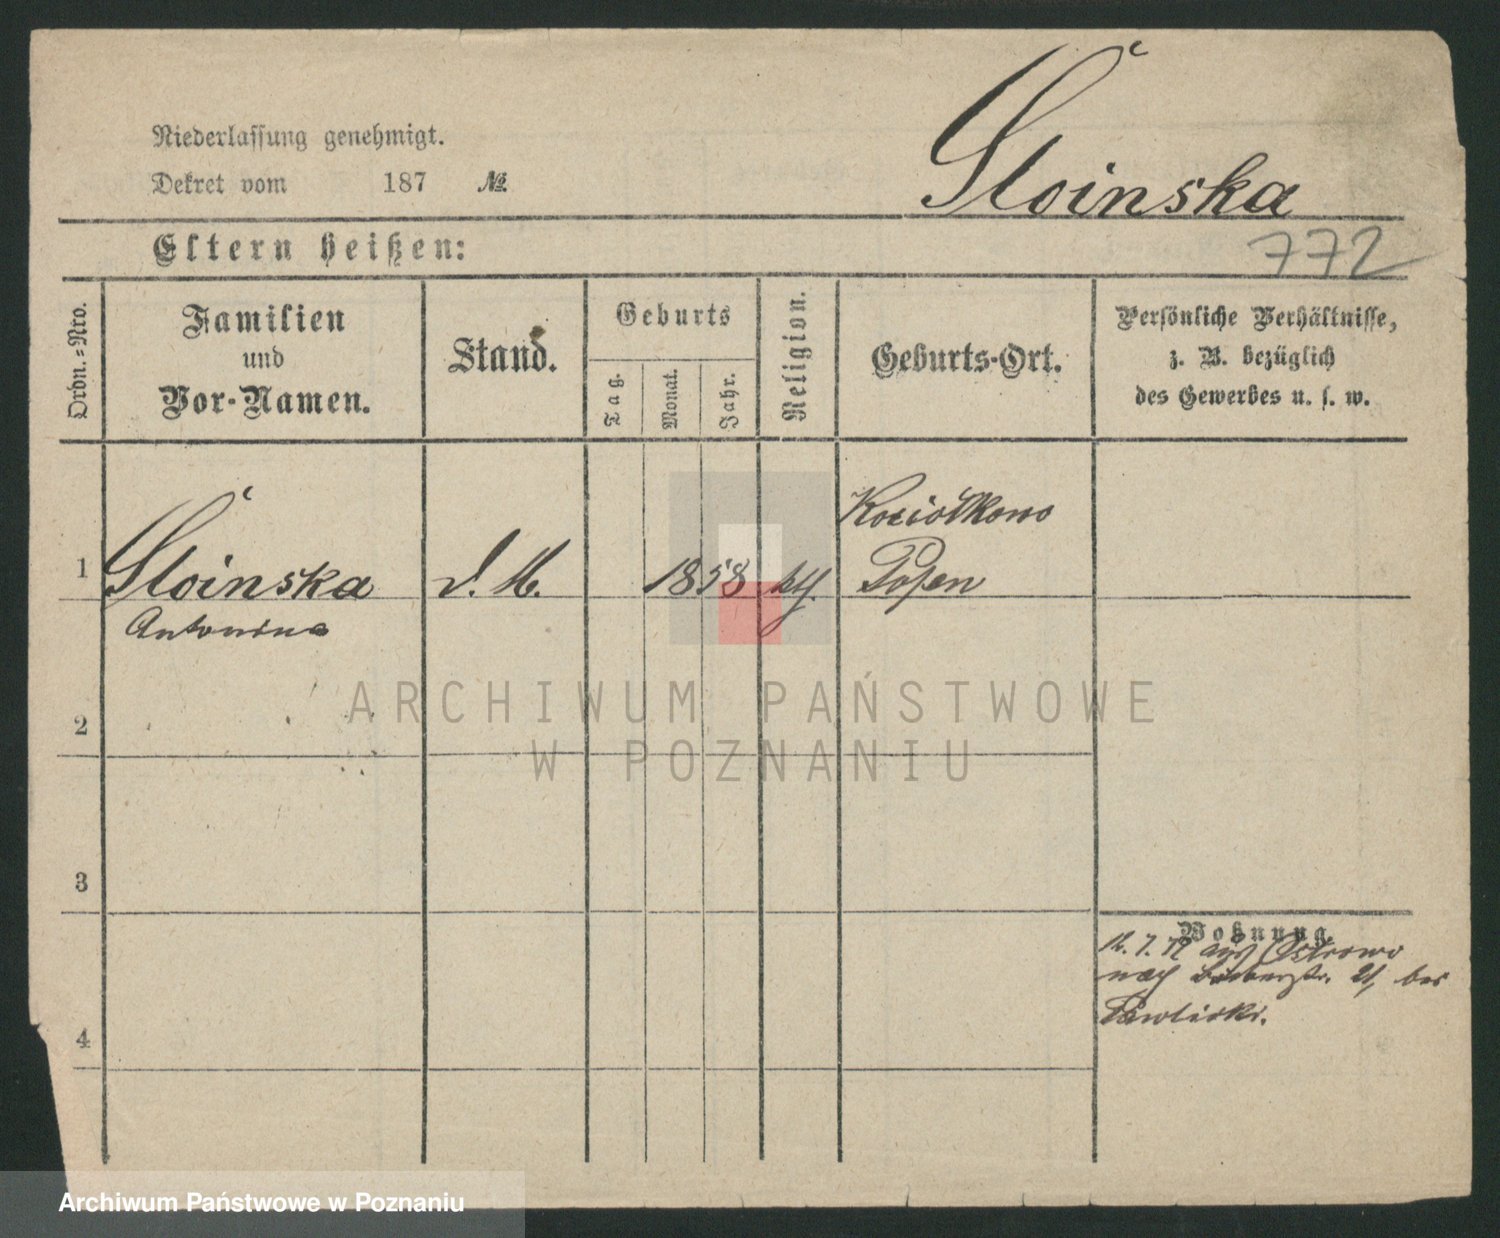 Niederlassung genehmigt.
Dekret vom 187 №
Sloinska
Eltern heißen:
772
Ordn.=Nro.
Familien
und
Vor-Namen.
Stand.
Geburts
Tag.
Monat.
Jahr.
Religion.
Geburts-Ort.
Persönliche Verhältnisse,
z. B. bezüglich
des Gewerbes u. s. w.
1
Sloinska
Antonina
d. M.
1858
kth.
Kociołkowo
Posen
2
3
4
Wohnung
aus Ostrowo
nach 21, bei
ARCHIWUM PAŃSTWOWE
W POZNANIU
Archiwum Państwowe w Poznaniu